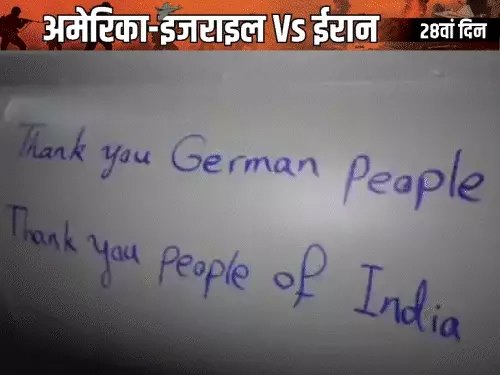 अमेरिका-इजराइल Vs ईरान 28वां दिन
Thank you German People
Thank you people of India